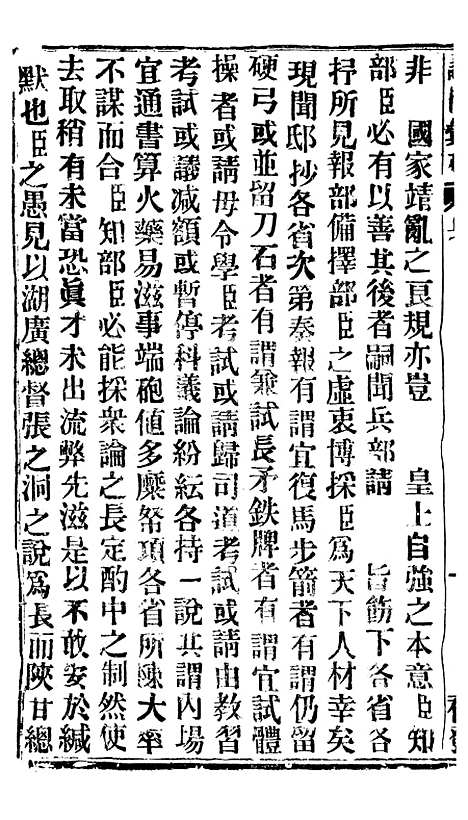 非　國家靖亂之良規亦豈　　皇上自強之本意臣知
部臣必有以善其後者嗣聞兵部請　　旨飭下各省各
抒所見報部備擇部臣之虛衷博採臣爲天下人材幸矣
現聞邸抄各省次第奏報有謂宜復馬步箭者有謂仍留
硬弓或並留刀石者有謂兼試長矛鉄牌者有謂宜試體
操者或請毋令學臣考試或請歸司道考試或請由教習
考試或議減額或暫停科議論紛紜各持一說其謂內場
宜通書算火藥易滋事端砲値多糜帑項各省所陳大率
不謀而合臣知部臣必能採衆論之長定酌中之制然使
去取稍有未當恐眞才未出流弊先滋是以不敢安於緘
默也臣之愚見以湖廣總督張之洞之說爲長而陝甘總